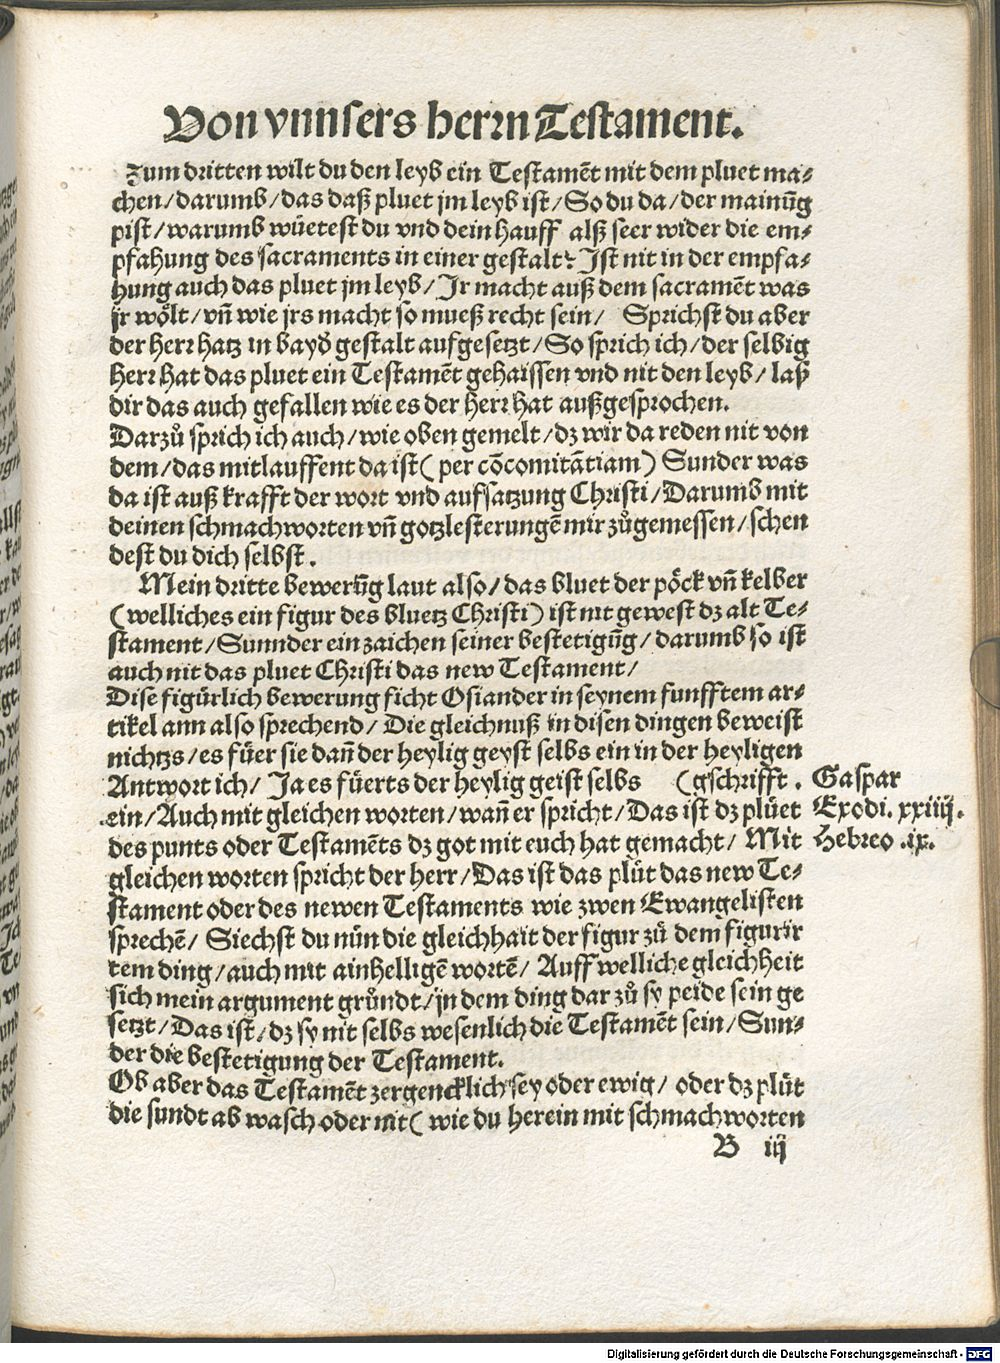 Von vnnsers herrn Testament.
Zum dritten wilt du den leyb ein Testamẽt mit dem pluet ma⸗
chen/darumb/das daß pluet jm leyb ist/So du da/der mainũg
pist/warumb wüetest du vnd dein hauff alß seer wider die em⸗
pfahung des sacraments in einer gestalt? Jst nit in der empfa⸗
hung auch das pluet jm leyb/Jr macht auß dem sacramẽt was
jr wölt/vñ wie jrs macht so mueß recht sein/ Sprichst du aber
der herr hatz in bayd gestalt aufgesetzt/So sprich ich/der selbig
Herr hat das pluet ein Testamẽt gehaissen vnd nit den leyb/ laß
dir das auch gefallen wie es der Herr hat außgesprochen.
Darzů sprich ich auch/wie oben gemelt/dz wir da reden nit von
dem/das mitlauffent da ist( per cõcomitãtiam) Sunder was
da ist auß krafft der wort vnd aufsatzung Christi/Darumb mit
deinen schmachworten vñ gotzlesterungẽ mir zůgemessen/schen
dest du dich selbst.
Mein dritte bewerũg laut also/das bluet der pöck vñ kelber
(welliches ein figur des bluetz Christi) ist nit gewest dz alt Te⸗
stament/Sunnder ein zaichen seiner bestetigũg/darumb so ist
auch nit das pluet Christi das new Testament/
Dise figürlich bewerung ficht Osiander in seynem funfftem ar⸗
tikel ann also sprechend/Die gleichnuß in disen dingen beweist
nichtzs/es füer sie dañ der heylig geyst selbs ein in der heyligen
Antwort ich/ Ja es füerts der heylig geist selbs (gschrifft.
ein/Auch mit gleichen worten/wañ er spricht/Das ist dz plüet
des punts oder Testamẽts dz got mit euch hat gemacht/ Mit
gleichen worten spricht der herr/Das ist das plüt das new Te⸗
stament oder des newen Testaments wie zwen Ewangelisten
sprechẽ/ Siechst du nün die gleichhait der figur zů dem figurir
tem ding/auch mit ainhelligẽ wortẽ/ Auff welliche gleichheit
sich mein argument grůndt/jn dem ding dar zů sy peide sein ge
setzt/Das ist/dz sy nit selbs wesenlich die Testamẽt sein/Sun⸗
der die bestetigung der Testament.
Ob aber das Testamẽt zergencklich sey oder ewig/ oder dz plüt
die sundt ab wasch oder nit( wie du herein mit schmachworten
B iij
Gaspar
Exodi. xxiiij.
Hebreo .ix.
Digitalisierung gefördert durch die Deutsche Forschungsgemeinschaft - DFG